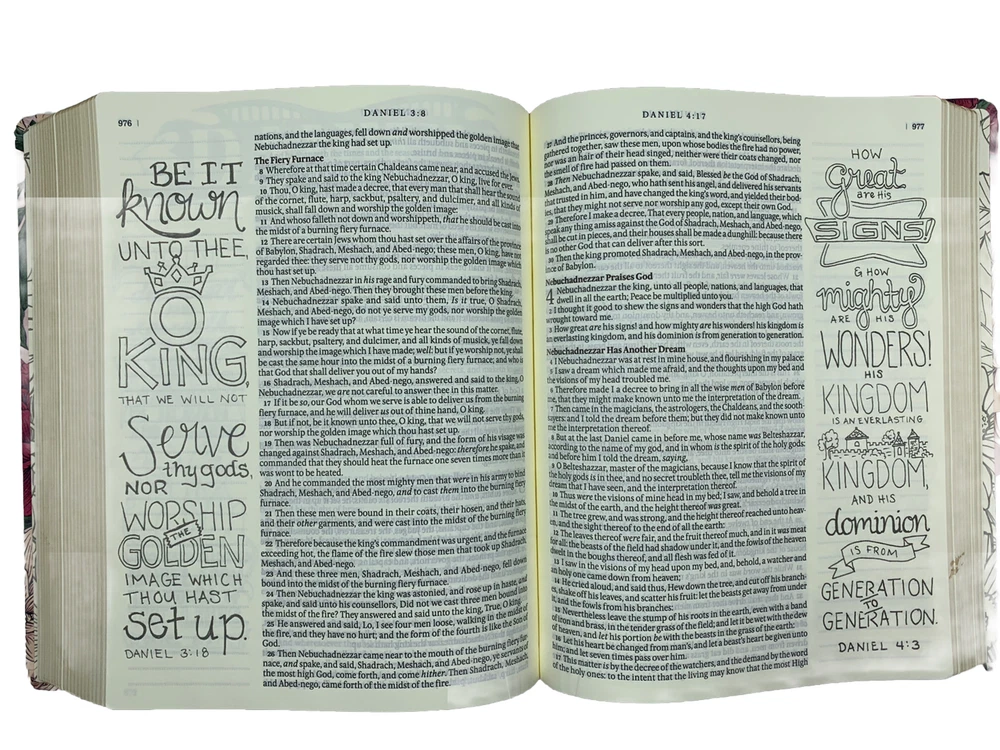 976
DANIEL 3:8
BE IT
known
UNTO THEE,
O
KING,
THAT WE WILL NOT
Serve
thy gods,
NOR
WORSHIP
THE
GOLDEN
IMAGE WHICH
THOU HAST
set up.
DANIEL 3:18
nations, and the languages, fell down and worshipped the golden image that
Nebuchadnezzar the king had set up.
The Fiery Furnace
8 Wherefore at that time certain Chaldeans came near, and accused the Jews.
9 They spake and said to the king Nebuchadnezzar, O king, live for ever.
10 Thou, O king, hast made a decree, that every man that shall hear the sound
of the cornet, flute, harp, sackbut, psaltery, and dulcimer, and all kinds of
musick, shall fall down and worship the golden image:
11 And whoso falleth not down and worshippeth, that he should be cast into
the midst of a burning fiery furnace.
12 There are certain Jews whom thou hast set over the affairs of the province
of Babylon, Shadrach, Meshach, and Abed-nego; these men, O king, have not
regarded thee: they serve not thy gods, nor worship the golden image which
thou hast set up.
13 Then Nebuchadnezzar in his rage and fury commanded to bring Shadrach,
Meshach, and Abed-nego. Then they brought these men before the king.
14 Nebuchadnezzar spake and said unto them, Is it true, O Shadrach,
Meshach, and Abed-nego, do not ye serve my gods, nor worship the golden
image which I have set up?
15 Now if ye be ready that at what time ye hear the sound of the cornet, flute,
harp, sackbut, psaltery, and dulcimer, and all kinds of musick, ye fall down
and worship the image which I have made; well: but if ye worship not, ye shall
be cast the same hour into the midst of a burning fiery furnace; and who is
that God that shall deliver you out of my hands?
16 Shadrach, Meshach, and Abed-nego, answered and said to the king, O
Nebuchadnezzar, we are not careful to answer thee in this matter.
17 If it be so, our God whom we serve is able to deliver us from the burning
fiery furnace, and he will deliver us out of thine hand, O king.
18 But if not, be it known unto thee, O king, that we will not serve thy gods,
nor worship the golden image which thou hast set up.
19 Then was Nebuchadnezzar full of fury, and the form of his visage was
changed against Shadrach, Meshach, and Abed-nego: therefore he spake, and
commanded that they should heat the furnace one seven times more than it
was wont to be heated.
20 And he commanded the most mighty men that were in his army to bind
Shadrach, Meshach, and Abed-nego, and to cast them into the burning fiery
furnace.
21 Then these men were bound in their coats, their hosen, and their hats,
and their other garments, and were cast into the midst of the burning fiery
furnace.
22 Therefore because the king's commandment was urgent, and the furnace
exceeding hot, the flame of the fire slew those men that took up Shadrach,
Meshach, and Abed-nego.
23 And these three men, Shadrach, Meshach, and Abed-nego, fell down
bound into the midst of the burning fiery furnace.
24 Then Nebuchadnezzar the king was astonied, and rose up in haste, and
spake, and said unto his counsellors, Did not we cast three men bound into
the midst of the fire? They answered and said unto the king, True, O king.
25 He answered and said, Lo, I see four men loose, walking in the midst of
the fire, and they have no hurt; and the form of the fourth is like the Son of
God.
26 Then Nebuchadnezzar came near to the mouth of the burning fiery
nace, and spake, and said, Shadrach, Meshach, and Abed-nego, ye servants of
the most high God, come forth, and come hither. Then Shadrach, Meshach,
and Abed-nego, came forth of the midst of the fire.
DANIEL 4:17
977
27 And the princes, governors, and captains, and the king's counsellors, being
gathered together, saw these men, upon whose bodies the fire had no power,
nor was an hair of their head singed, neither were their coats changed, nor
the smell of fire had passed on them.
28 Then Nebuchadnezzar spake, and said, Blessed be the God of Shadrach,
Meshach, and Abed-nego, who hath sent his angel, and delivered his servants
that trusted in him, and have changed the king's word, and yielded their bod-
ies, that they might not serve nor worship any god, except their own God.
29 Therefore I make a decree, That every people, nation, and language, which
speak any thing amiss against the God of Shadrach, Meshach, and Abed-nego,
shall be cut in pieces, and their houses shall be made a dunghill: because there
is no other God that can deliver after this sort.
30 Then the king promoted Shadrach, Meshach, and Abed-nego, in the prov-
ince of Babylon.
Nebuchadnezzar Praises God
4 Nebuchadnezzar the king, unto all people, nations, and languages, that
dwell in all the earth; Peace be multiplied unto you.
2 I thought it good to shew the signs and wonders that the high God hath
wrought toward me.
3 How great are his signs! and how mighty are his wonders! his kingdom is
an everlasting kingdom, and his dominion is from generation to generation.
Nebuchadnezzar Has Another Dream
4 I Nebuchadnezzar was at rest in mine house, and flourishing in my palace:
5 I saw a dream which made me afraid, and the thoughts upon my bed and
the visions of my head troubled me.
6 Therefore made I a decree to bring in all the wise men of Babylon before
me, that they might make known unto me the interpretation of the dream.
7 Then came in the magicians, the astrologers, the Chaldeans, and the sooth
sayers: and I told the dream before them; but they did not make known unto
me the interpretation thereof.
8 But at the last Daniel came in before me, whose name was Belteshazzar,
according to the name of my god, and in whom is the spirit of the holy gods:
and before him I told the dream, saying,
9 O Belteshazzar, master of the magicians, because I know that the spirit of
the holy gods is in thee, and no secret troubleth thee, tell me the visions of my
dream that I have seen, and the interpretation thereof.
10 Thus were the visions of mine head in my bed; I saw, and behold a tree in
the midst of the earth, and the height thereof was great.
11 The tree grew, and was strong, and the height thereof reached unto heav-
en, and the sight thereof to the end of all the earth:
12 The leaves thereof were fair, and the fruit thereof much, and in it was meat
for all: the beasts of the field had shadow under it, and the fowls of the heaven
dwelt in the boughs thereof, and all flesh was fed of it.
13 I saw in the visions of my head upon my bed, and, behold, a watcher and
an holy one came down from heaven;
14 He cried aloud, and said thus, Hew down the tree, and cut off his branch-
es, shake off his leaves, and scatter his fruit: let the beasts get away from under
it, and the fowls from his branches:
15 Nevertheless leave the stump of his roots in the earth, even with a band
of iron and brass, in the tender grass of the field; and let it be wet with the dew
of heaven, and let his portion be with the beasts in the grass of the earth:
16 Let his heart be changed from man's, and let a beast's heart be given unto
him; and let seven times pass over him.
17 This matter is by the decree of the watchers, and the demand by the word
of the holy ones: to the intent that the living may know that the most High
HOW
Great
are His
SIGNS!
& HOW
mighty
ARE HIS
WONDERS!
HIS
KINGDOM
IS AN EVERLASTING
KINGDOM,
AND HIS
dominion
IS FROM
GENERATION
TO
GENERATION.
DANIEL 4:3